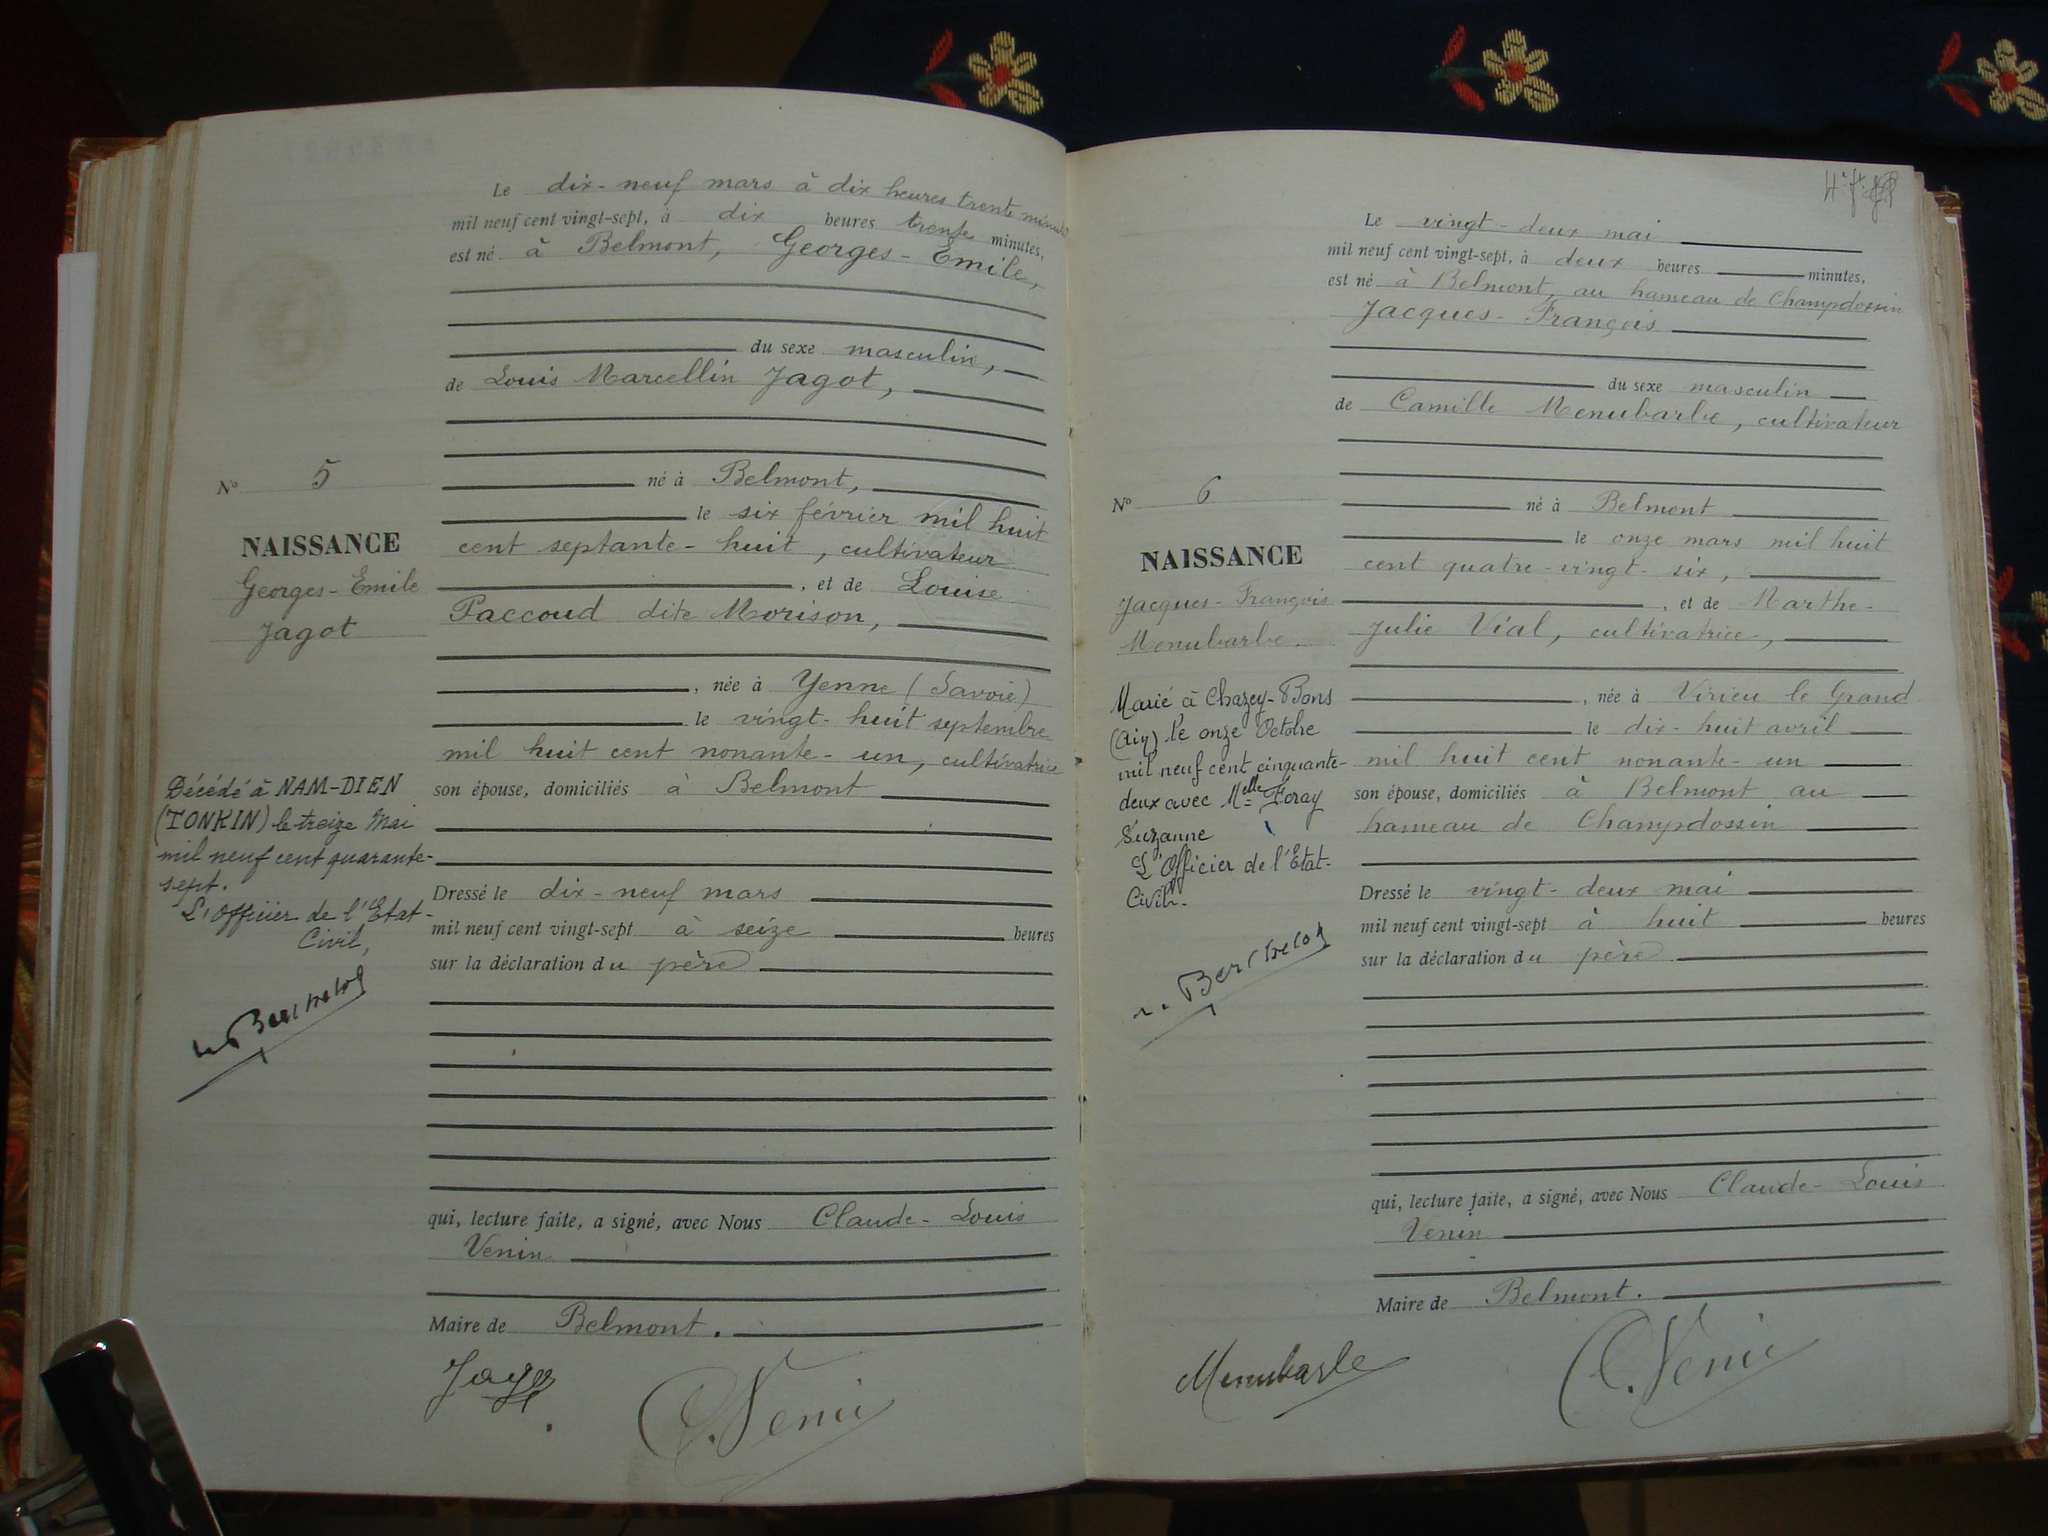 Le dix-neuf mars à dix heures trente minutes
mil neuf cent vingt-sept, à dix heures trente minutes,
est né à Belmont, Georges-Emile,
du sexe masculin,
de Louis Marcellin Jagot,
né à Belmont,
le six février mil huit
cent septante-huit, cultivateur
, et de Louise
Paccoud dite Morison,
, née à Yenne (Savoie)
le vingt-huit septembre
mil huit cent nonante-un, cultivatrice
son épouse, domiciliés à Belmont
Dressé le dix-neuf mars
mil neuf cent vingt-sept à seize heures
sur la déclaration du père
qui, lecture faite, a signé, avec Nous Claude-Louis
Venin
Maire de Belmont.
Jagot
C. Venin
N° 5
NAISSANCE
Georges-Emile
Jagot
Décédé à NAM-DIEN
(TONKIN) le treize Mai
mil neuf cent quarante-
sept.
L'Officier de l'Etat-
Civil,
Berthelot
Le vingt-deux mai
mil neuf cent vingt-sept, à deux heures minutes,
est né à Belmont, au hameau de Champdossin
Jacques-François
du sexe masculin
de Camille Menubarbe, cultivateur
né à Belmont
le onze mars mil huit
cent quatre-vingt-six,
, et de Marthe-
Julie Vial, cultivatrice,
, née à Virieu le Grand
le dix-huit avril
mil huit cent nonante-un
son épouse, domiciliés à Belmont au
hameau de Champdossin
Dressé le vingt-deux mai
mil neuf cent vingt-sept à huit heures
sur la déclaration du père
qui, lecture faite, a signé, avec Nous Claude-Louis
Venin
Maire de Belmont.
Menubarbe
C. Venin
N° 6
NAISSANCE
Jacques-François
Menubarbe
Marié à Chazey-Bons
(Ain) le onze Octobre
mil neuf cent cinquante-
deux avec Melle Foray
Suzanne
L'Officier de l'Etat-
Civil.
Berthelot